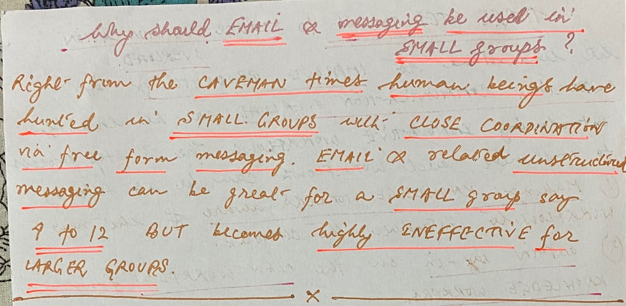 Why should EMAIL & messaging be used in
SMALL groups?
Right from the CAVEMAN times human beings have
hunted in SMALL GROUPS with CLOSE COORDINATION
via free form messaging. EMAIL & related unstructured
messaging can be great for a SMALL group say
9 to 12 BUT becomes highly INEFFECTIVE for
LARGER GROUPS.
x